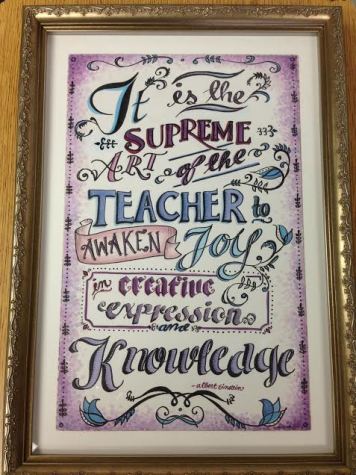 It is the
SUPREME
ART of the
TEACHER to
AWAKEN Joy
in creative
expression
and
Knowledge
- albert einstein